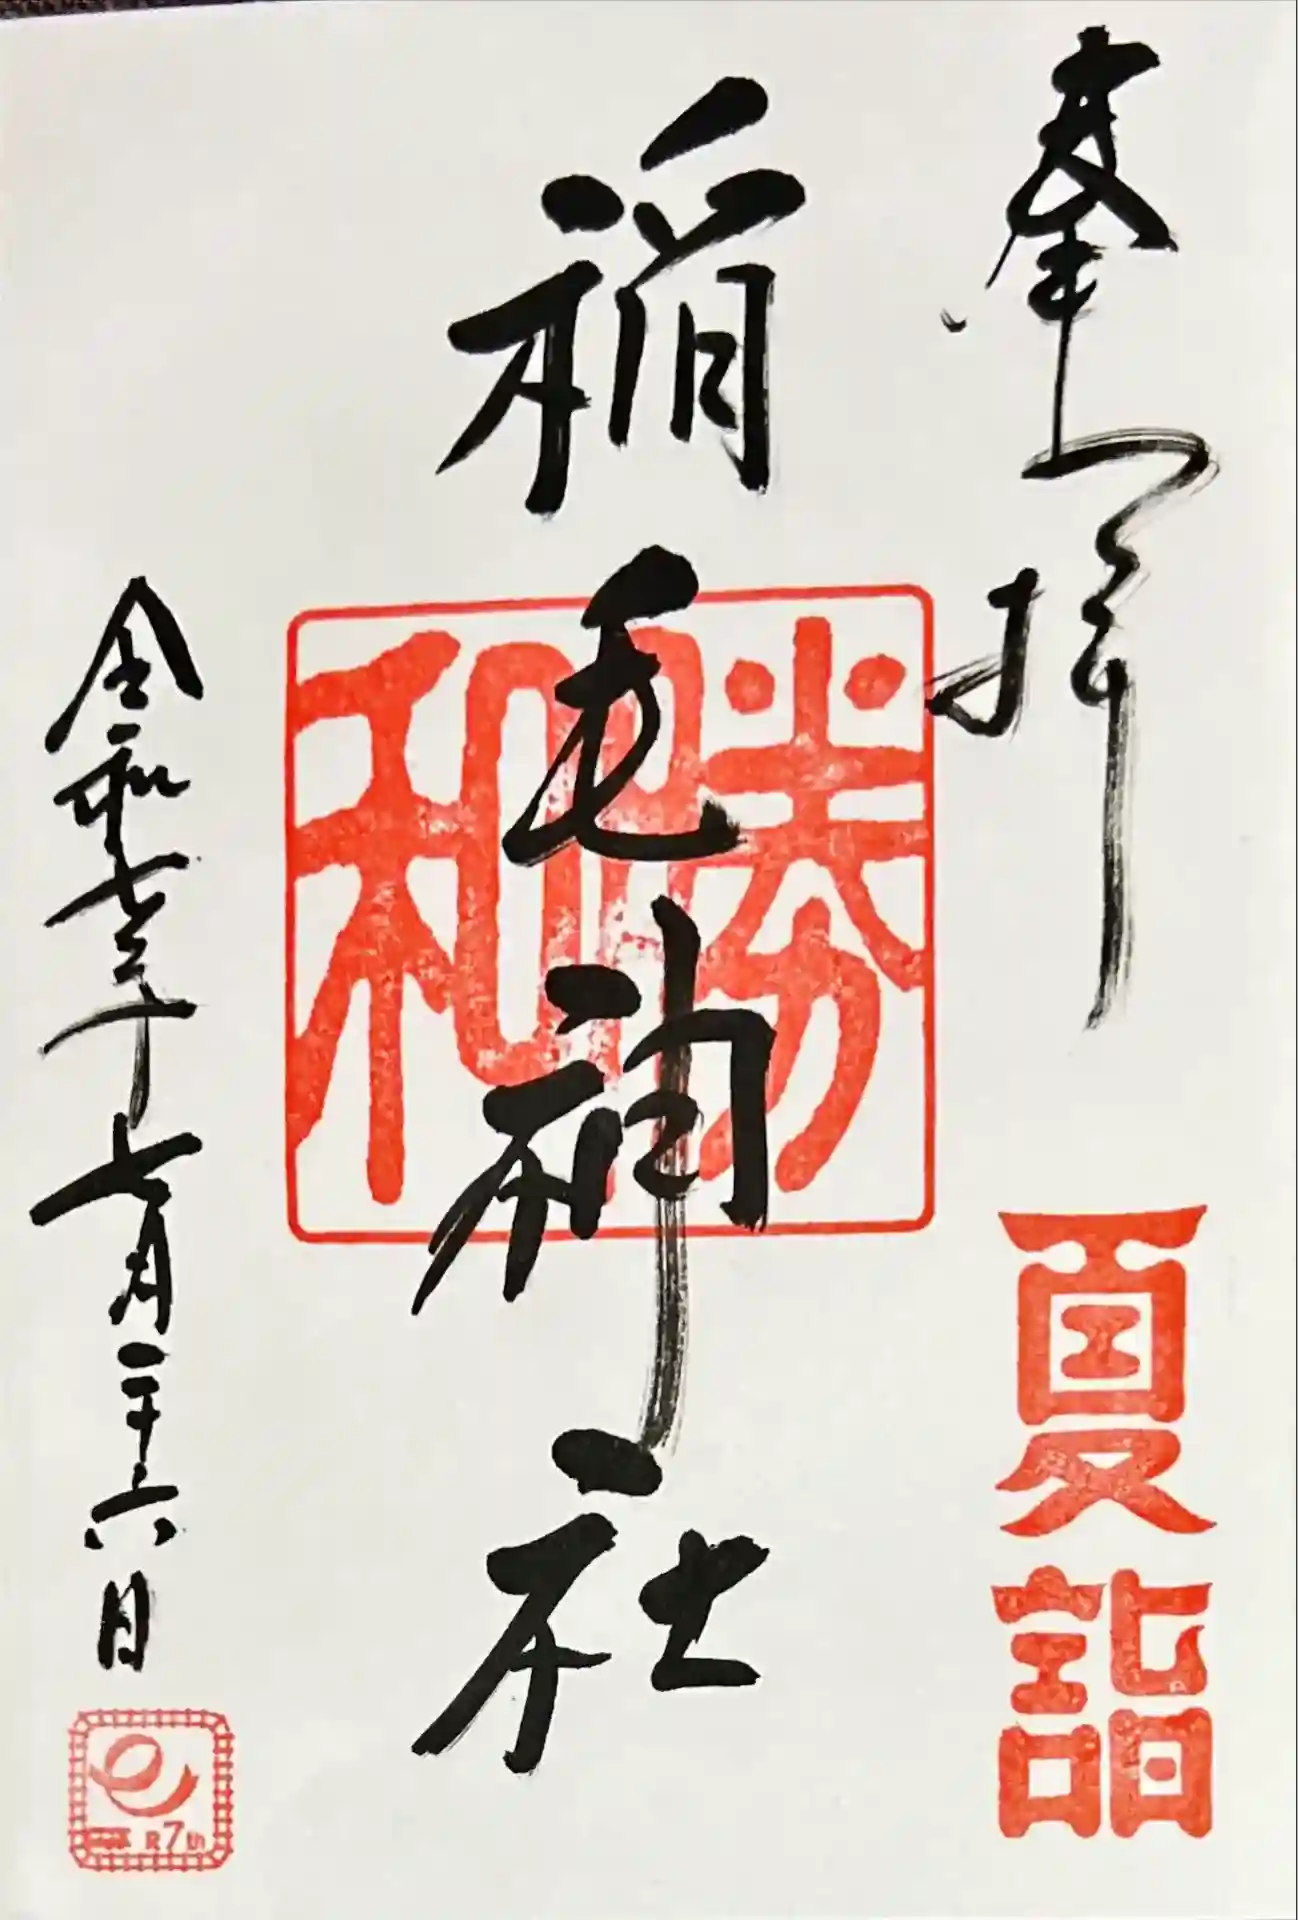 奉拝
夏詣
稲毛神社
勝和
令和七年七月二十六日
7th